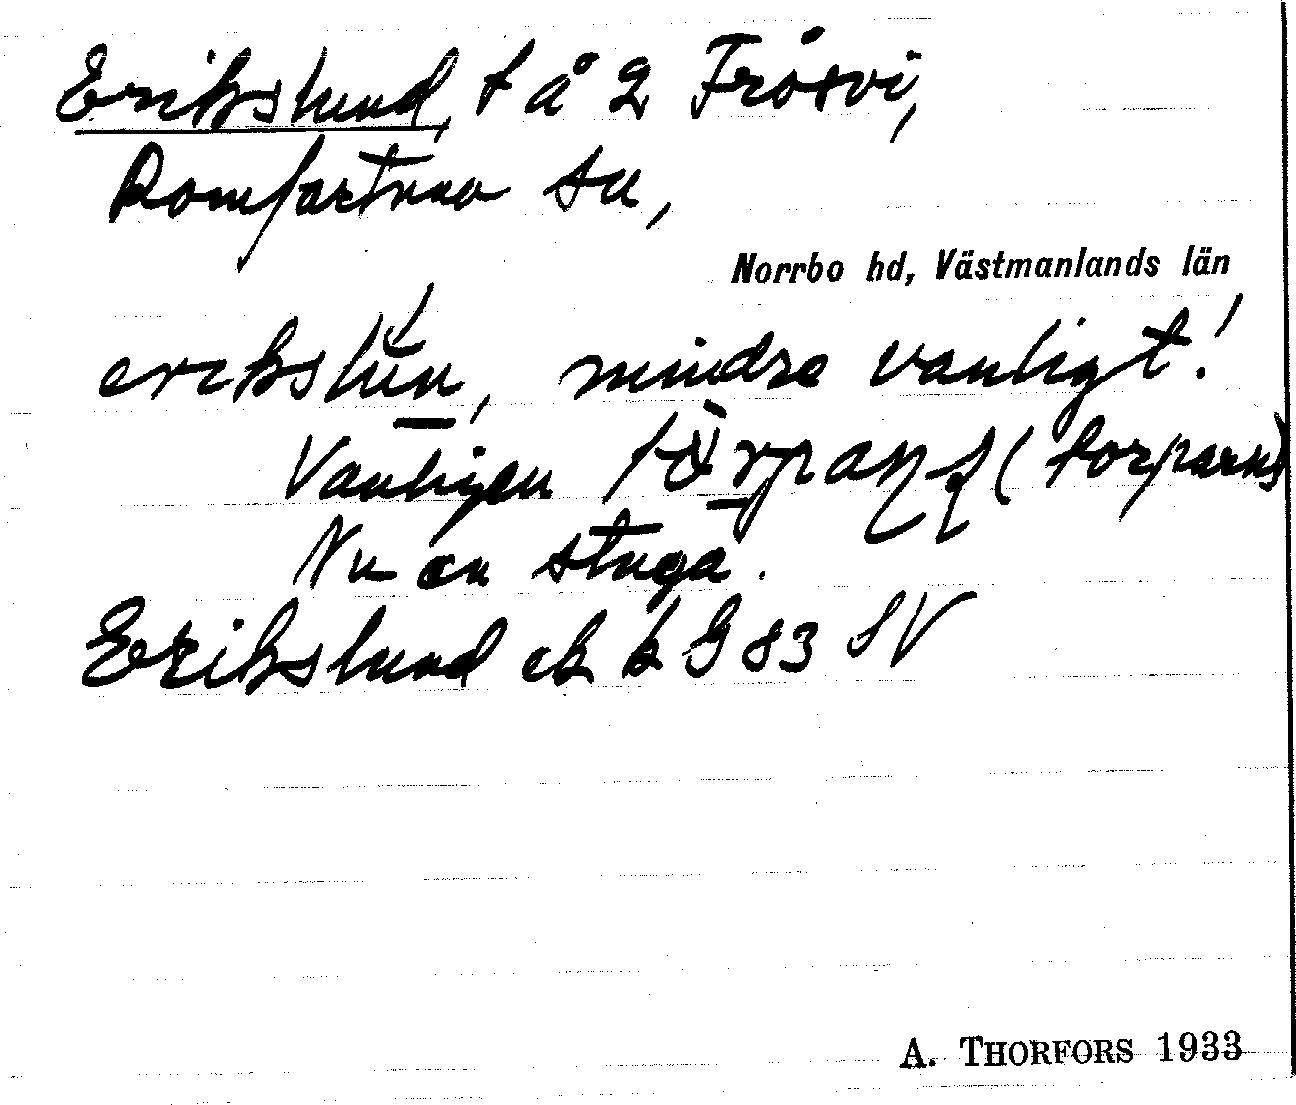 Erikslund, t å 2 Frösvi,
Romfartuna sn,
Norrbo hd, Västmanlands län
erikslún, mindre vanligt!
Vanligen (torparns)
Nu en stuga.
Erikslund ek bl 983 SV
A. THORFORS 1933